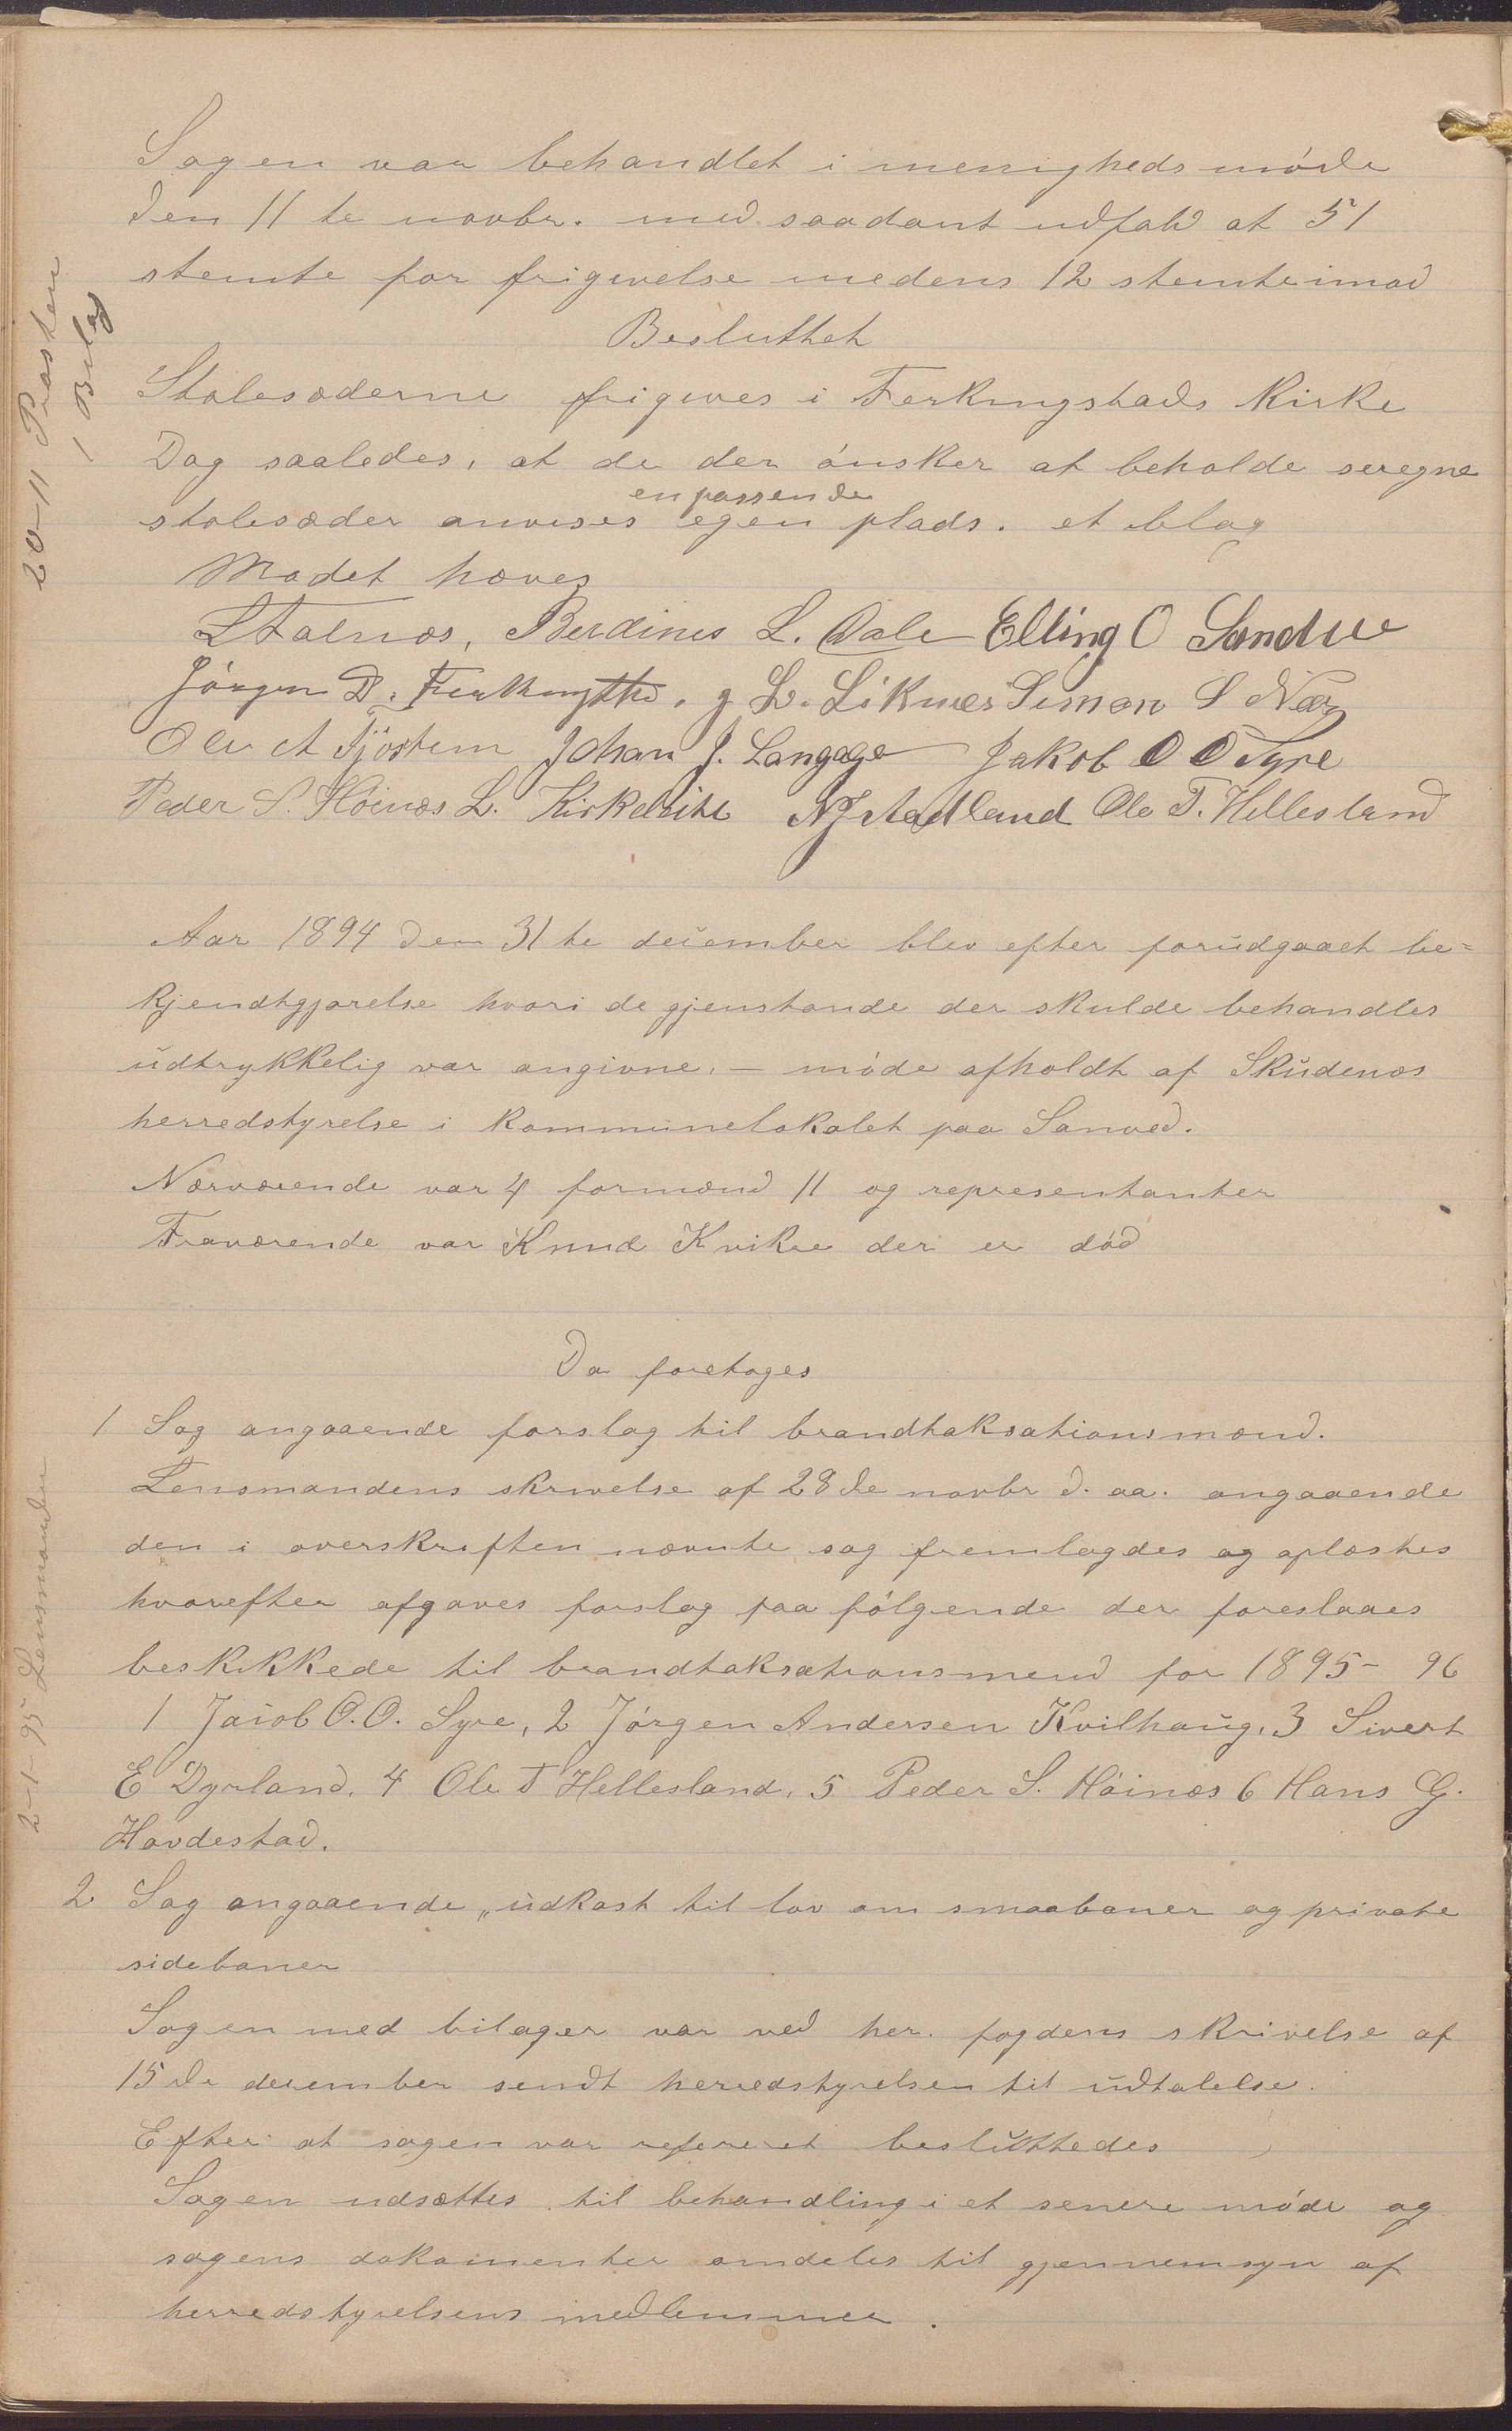 Sagen var behandlet i menighedsmøde
den 11te novbr. med saadant udfald at 51
stemte for frigivelse medens 12 stemte imod
Besluttet
Stolesæderne frigives i Ferkingstads Kirke
Dog saaledes, at de der ønsker at beholde sine egne
en passende
stolesæder anvises egen plads.
Mødet hæves
L Falnæs, Berdines L. Dale Elling O Sandve
Jørgen D. Ferkingstad, L. Liknes Simon S Næs
Ole A Tjøstem Johan J. Langåge Jakob O O Syre
Peder S. Høinæs L. Kirkeleite N Stadland Ole T. Hellesland
20-11 Præsten
1 Bilag
Aar 1894 den 31te december blev efter forudgaaet be=
kjendtgjørelse hvori de gjenstande der skulde behandles
udtrykkelig var angivne, – møde afholdt af Skudenæs
herredstyrelse i kommunelokalet paa Sanved.
Nærværende var 4 formænd 11 og representanter
Fraværende var Knud Kvikne der er død
Da foretoges
1 Sag angaaende forslag til brandtaksationsmænd.
Lensmandens skrivelse af 28de novbr d. aa. angaaende
den i overskriften nævnte sag fremlagdes og oplæstes
hvorefter afgaves forslag paa følgende der foreslaaes
beskikkede til brandtaksationsmend for 1895- 96
1 Jacob O.O. Syre, 2 Jørgen Andersen Kvilhaug, 3 Sivert
E Dyrland, 4 Ole T Hellesland, 5 Peder S. Høinæs 6 Hans G.
Hovdestad.
2-1-95 Lensmanden
2 Sag angaaende „udkast til lov om smaabaner og private
sidebaner
Sagen med bilager var ved her. fogdens skrivelse af
15de december sendt herredstyrelsen til udtalelse.
Efter at sagen var refereret besluttedes
Sagen udsættes til behandling i et senere møde og
sagens dokumenter omdeles til gjennemsyn af
herredstyrelsens medlemmer.